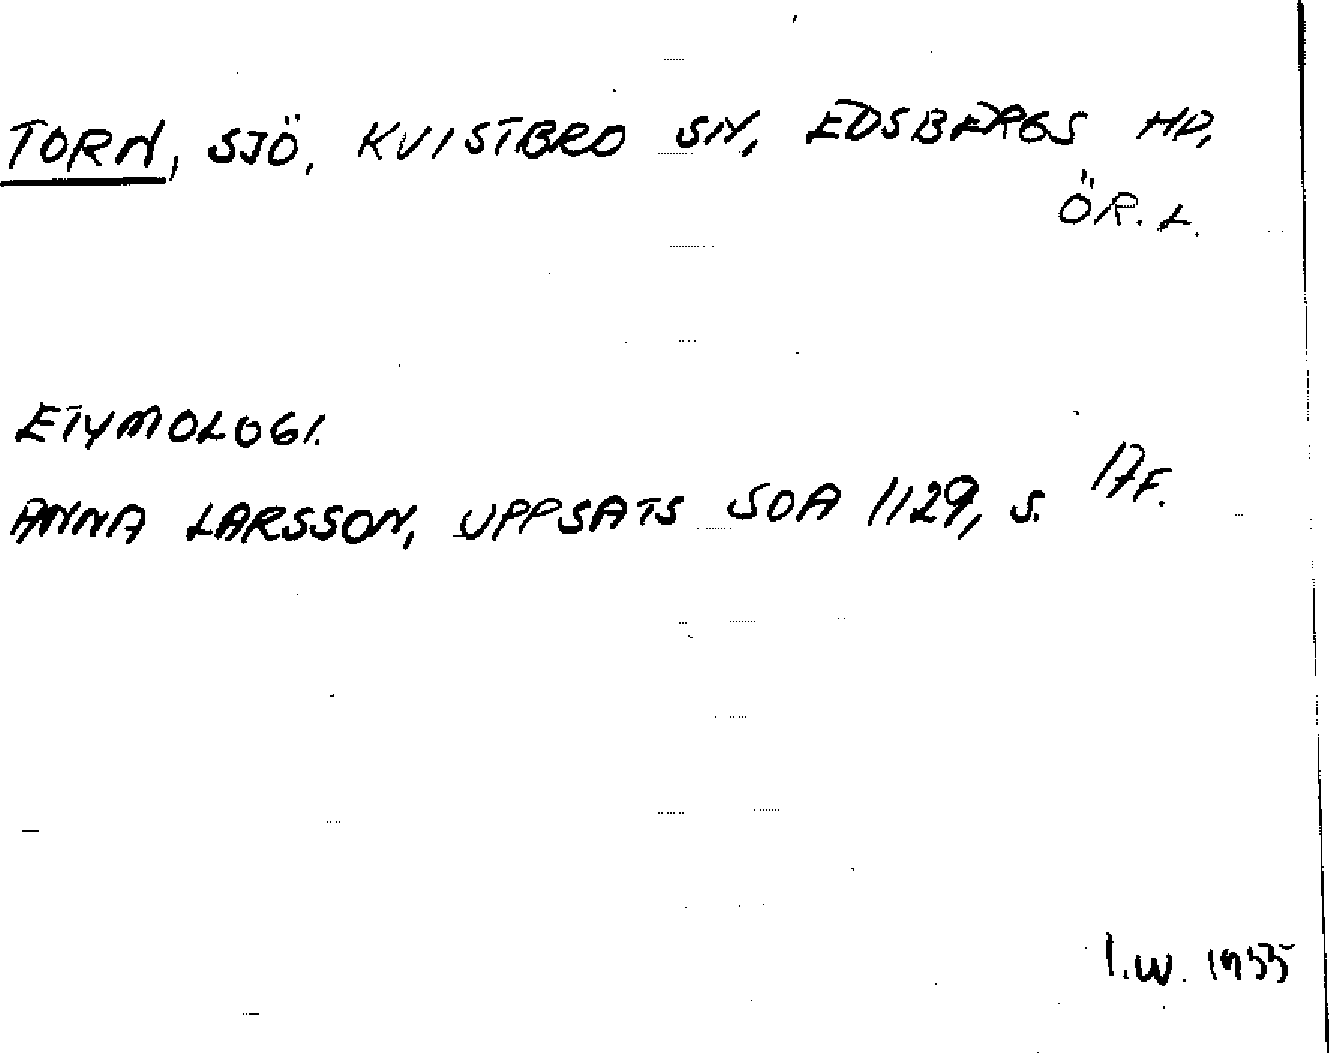 TORN, SJÖ, KVISTBRO SN, EDSBERGS HD,
ÖR.L.
ETYMOLOGI.
ANNA LARSSON, UPPSATS SOA 1129, S. 17 F.
I.W. 1955